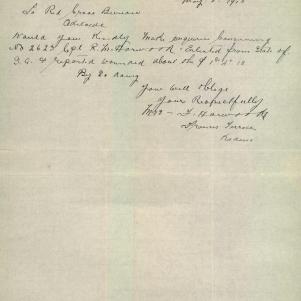 May 1918
To Red Cross Bureau
Adelaide
Would you Kindly Make enquiries Concerning
No 2623 Cpl R. W. Harwood Enlisted from State of
S.A & reported wounded about the
By So doing
you will oblige
your Respectfully
Mrs - F. Harwood
Terrace